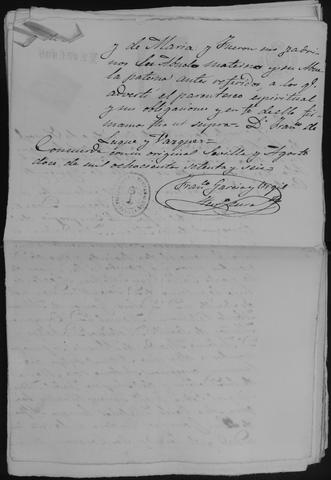 y de Maria y fueron sus padri-
nos los Abuelos maternos y su Abue-
la paterna antes referidos a los q.e
advertí el parentesco espiritual
y sus obligaciones y en fe de ello fir-
mamos fha ut supra. D.n Fran.co de
Luque y Vazquez
Concuerda con su original Sevilla y Agosto
doce de mil ochocientos setenta y seis
Fran.co Garcia y
Cura